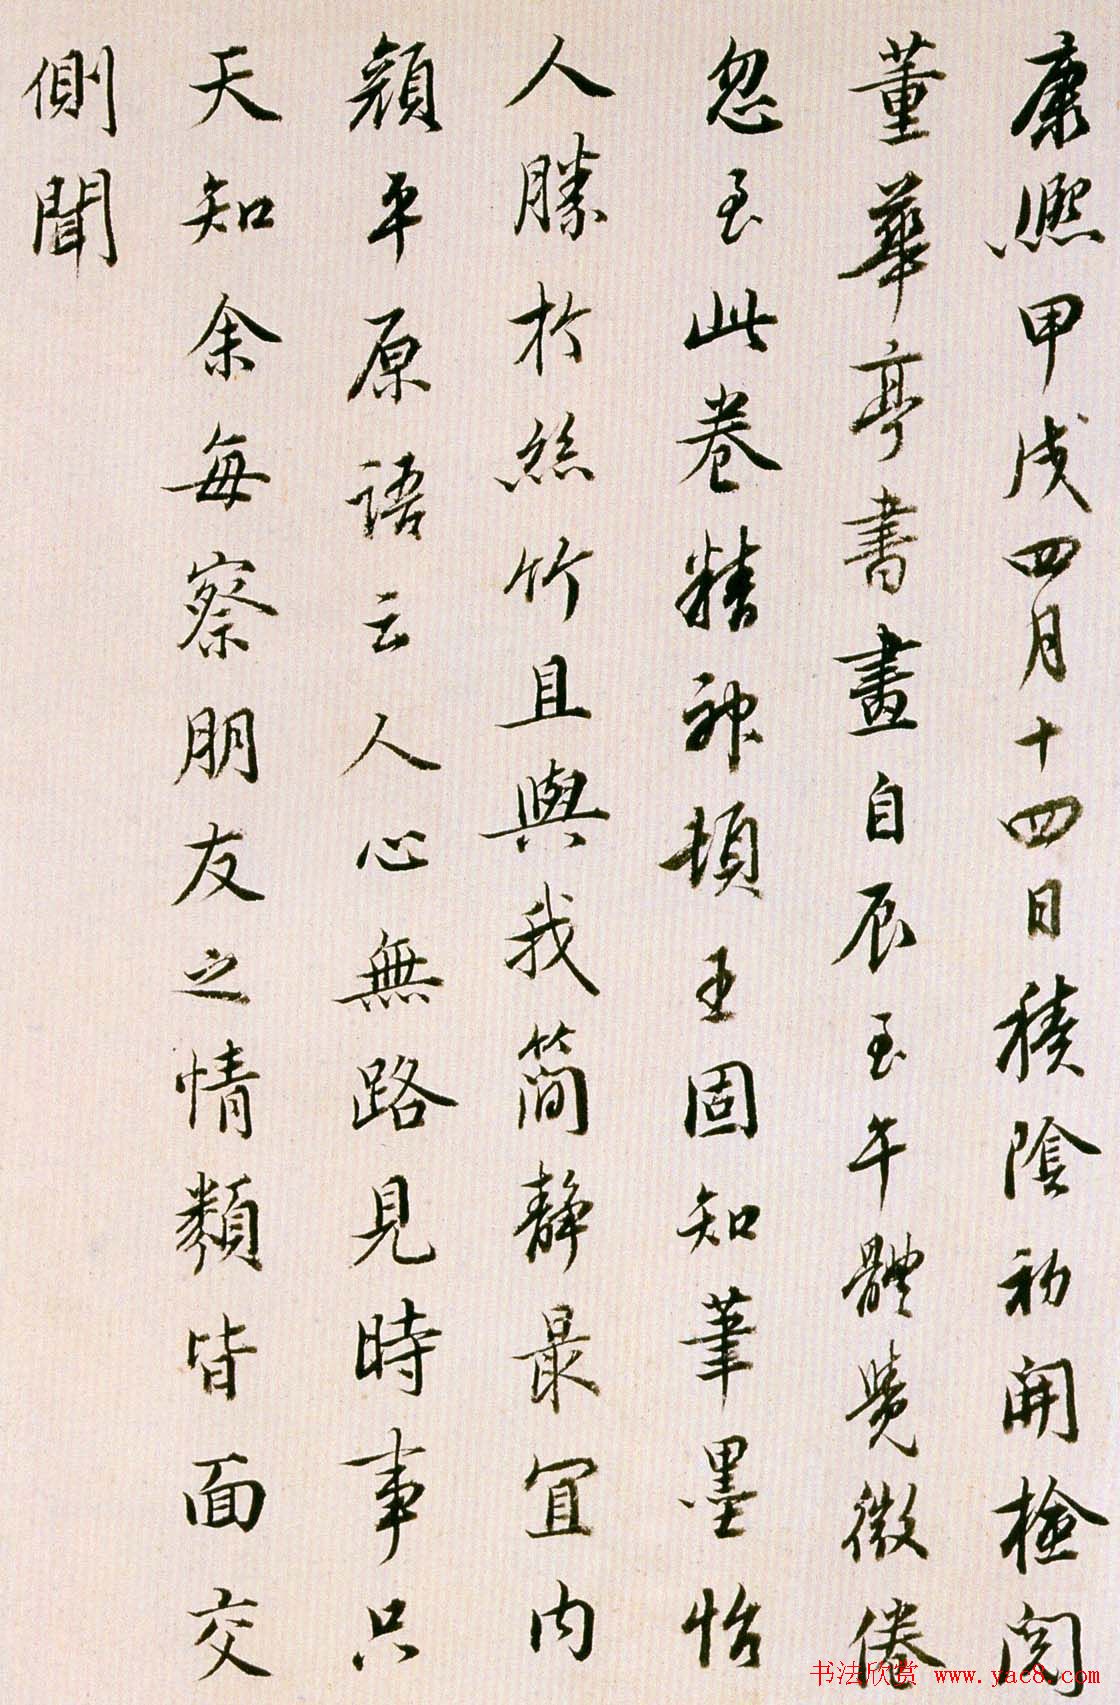 康熈甲戌四月十四日積陰初開檢閱
董華亭書畫自辰至午體覺微倦
忽至此卷精神頓王固知筆墨怡
人勝於絲竹且與我簡靜最宜内
顏平原語云人心無路見時事只
天知余每察朋友之情類皆面交
側聞
书法欣赏 www.yac8.com